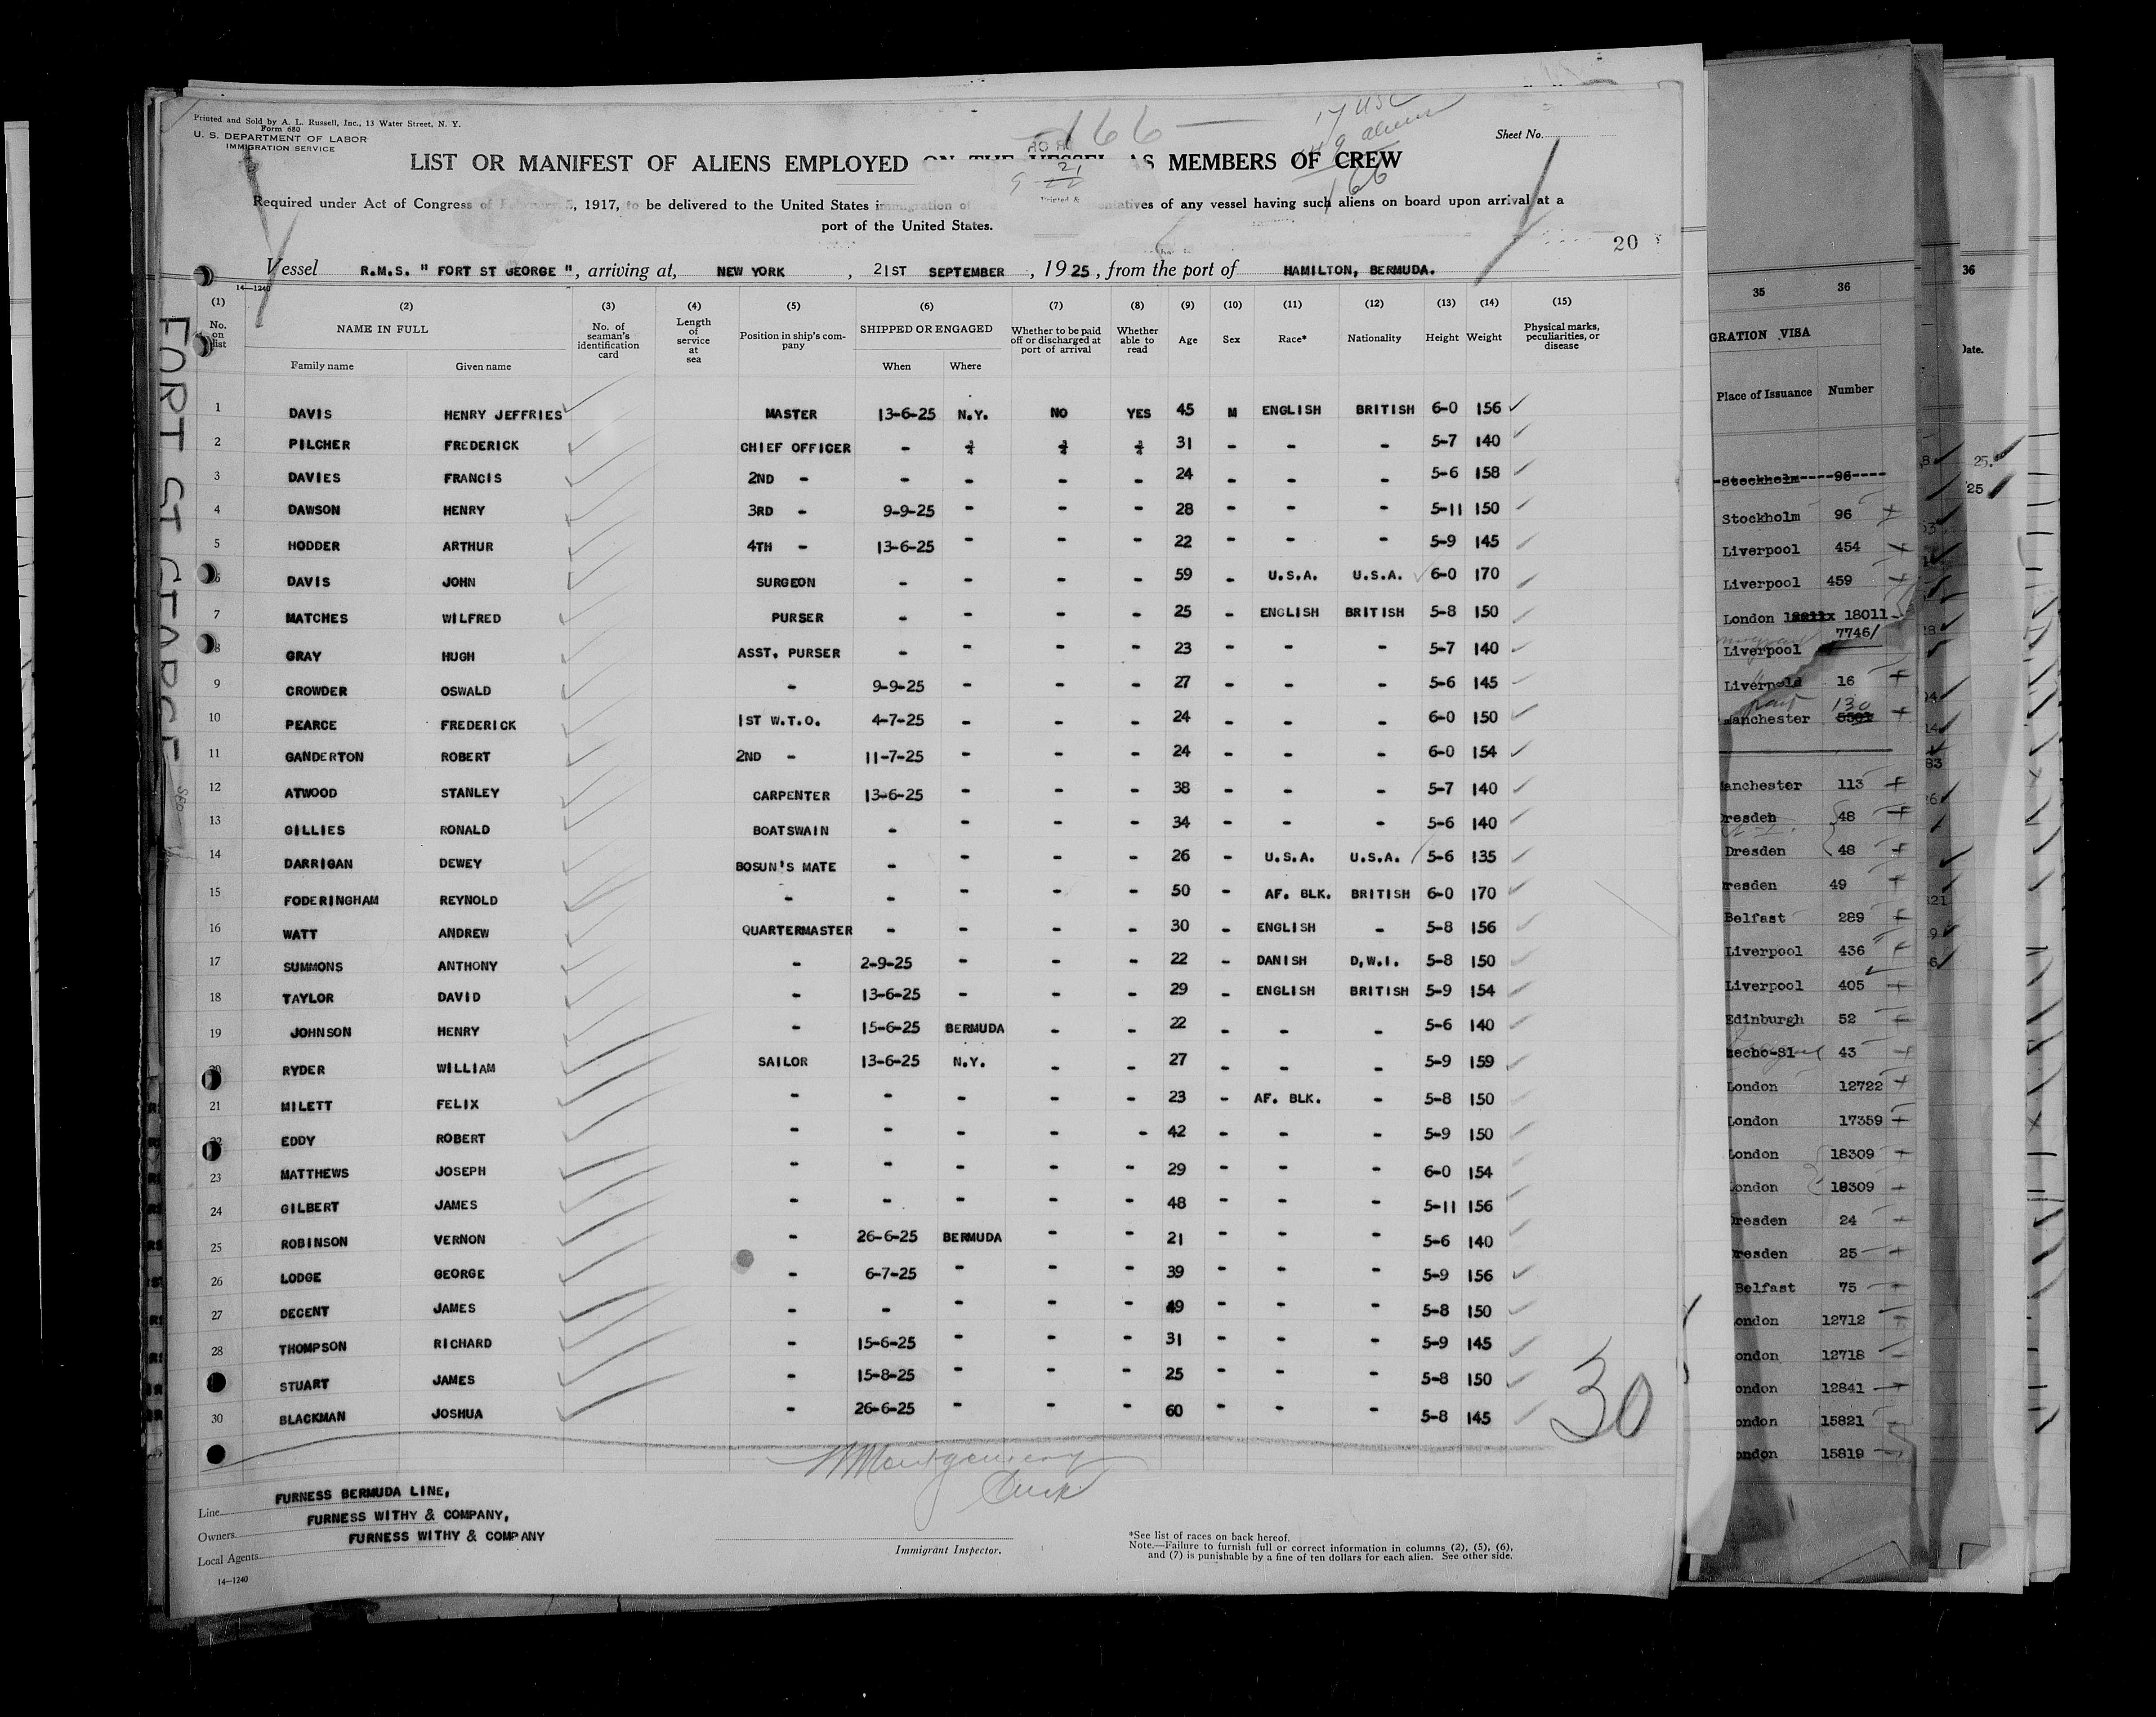 Printed and Sold by A. L. Russell, Inc., 13 Water Street, N. Y.
Form 680
U. S. DEPARTMENT OF LABOR
IMMIGRATION SERVICE
166
17 USC
149 aliens
166
Sheet No.
LIST OR MANIFEST OF ALIENS EMPLOYED ON THE VESSEL AS MEMBERS OF CREW
Required under Act of Congress of February 5, 1917, to be delivered to the United States immigration of any vessel having such aliens on board upon arrival at a
port of the United States.
20
Vessel R.M.S. " FORT ST GEORGE ", arriving at, NEW YORK, 21ST SEPTEMBER, 1925, from the port of HAMILTON, BERMUDA.
14—1240
(1) (2) (3) (4) (5) (6) (7) (8) (9) (10) (11) (12) (13) (14) (15)
No. on list NAME IN FULL Family name Given name No. of seaman's identification card Length of service at sea Position in ship's company SHIPPED OR ENGAGED When Where Whether to be paid off or discharged at port of arrival Whether able to read Age Sex Race* Nationality Height Weight Physical marks, peculiarities, or disease
1 DAVIS HENRY JEFFRIES MASTER 13-6-25 N.Y. NO YES 45 M ENGLISH BRITISH 6-0 156
2 PILCHER FREDERICK CHIEF OFFICER - 31 - - - 5-7 140
3 DAVIES FRANCIS 2ND - - - - - 24 - - - 5-6 158
4 DAWSON HENRY 3RD - 9-9-25 - - - 28 - - - 5-11 150
5 HODDER ARTHUR 4TH - 13-6-25 - - - 22 - - - 5-9 145
6 DAVIS JOHN SURGEON - - - - 59 - U.S.A. U.S.A. 6-0 170
7 MATCHES WILFRED PURSER - - - - 25 - ENGLISH BRITISH 5-8 150
8 GRAY HUGH ASST. PURSER - - - - 23 - - - 5-7 140
9 CROWDER OSWALD - 9-9-25 - - - 27 - - - 5-6 145
10 PEARCE FREDERICK 1ST W.T.O. 4-7-25 - - - 24 - - - 6-0 150
11 GANDERTON ROBERT 2ND - 11-7-25 - - - 24 - - - 6-0 154
12 ATWOOD STANLEY CARPENTER 13-6-25 - - - 38 - - - 5-7 140
13 GILLIES RONALD BOATSWAIN - - - - 34 - - - 5-6 140
14 DARRIGAN DEWEY BOSUN'S MATE - - - - 26 - U.S.A. U.S.A. 5-6 135
15 FODERINGHAM REYNOLD - - - - - 50 - AF. BLK. BRITISH 6-0 170
16 WATT ANDREW QUARTERMASTER - - - - 30 - ENGLISH - 5-8 156
17 SUMMONS ANTHONY - 2-9-25 - - - 22 - DANISH D.W.I. 5-8 150
18 TAYLOR DAVID - 13-6-25 - - - 29 - ENGLISH BRITISH 5-9 154
19 JOHNSON HENRY - 15-6-25 BERMUDA - - 22 - - - 5-6 140
20 RYDER WILLIAM SAILOR 13-6-25 N.Y. - - 27 - - - 5-9 159
21 MILETT FELIX - - - - - 23 - AF. BLK. - 5-8 150
22 EDDY ROBERT - - - - - 42 - - - 5-9 150
23 MATTHEWS JOSEPH - - - - - 29 - - - 6-0 154
24 GILBERT JAMES - - - - - 48 - - - 5-11 156
25 ROBINSON VERNON - 26-6-25 BERMUDA - - 21 - - - 5-6 140
26 LODGE GEORGE - 6-7-25 - - - 39 - - - 5-9 156
27 DECENT JAMES - - - - - 49 - - - 5-8 150
28 THOMPSON RICHARD - 15-6-25 - - - 31 - - - 5-9 145
STUART JAMES - 15-8-25 - - - 25 - - - 5-8 150
30 BLACKMAN JOSHUA - 26-6-25 - - - 60 - - - 5-8 145
30
Montgomery
Line FURNESS BERMUDA LINE,
Owners FURNESS WITHY & COMPANY,
Local Agents FURNESS WITHY & COMPANY
14—1240
Immigrant Inspector.
*See list of races on back hereof.
Note.—Failure to furnish full or correct information in columns (2), (5), (6),
and (7) is punishable by a fine of ten dollars for each alien. See other side.
FORT ST GEORGE
35 36
GRATION VISA
Place of Issuance Number
Stockholm 96
Stockholm 96
Liverpool 454
Liverpool 459
London 18011
7746/
Liverpool
Liverpool 16
130
anchester
anchester 113
resden 48
Dresden 48
resden 49
Belfast 289
Liverpool 436
Liverpool 405
Edinburgh 52
zecho-Sl 43
London 12722
London 17359
London 18309
ondon 18309
resden 24
resden 25
Belfast 75
ondon 12712
ondon 12718
ondon 12841
ondon 15821
ondon 15819
36
Date.
25